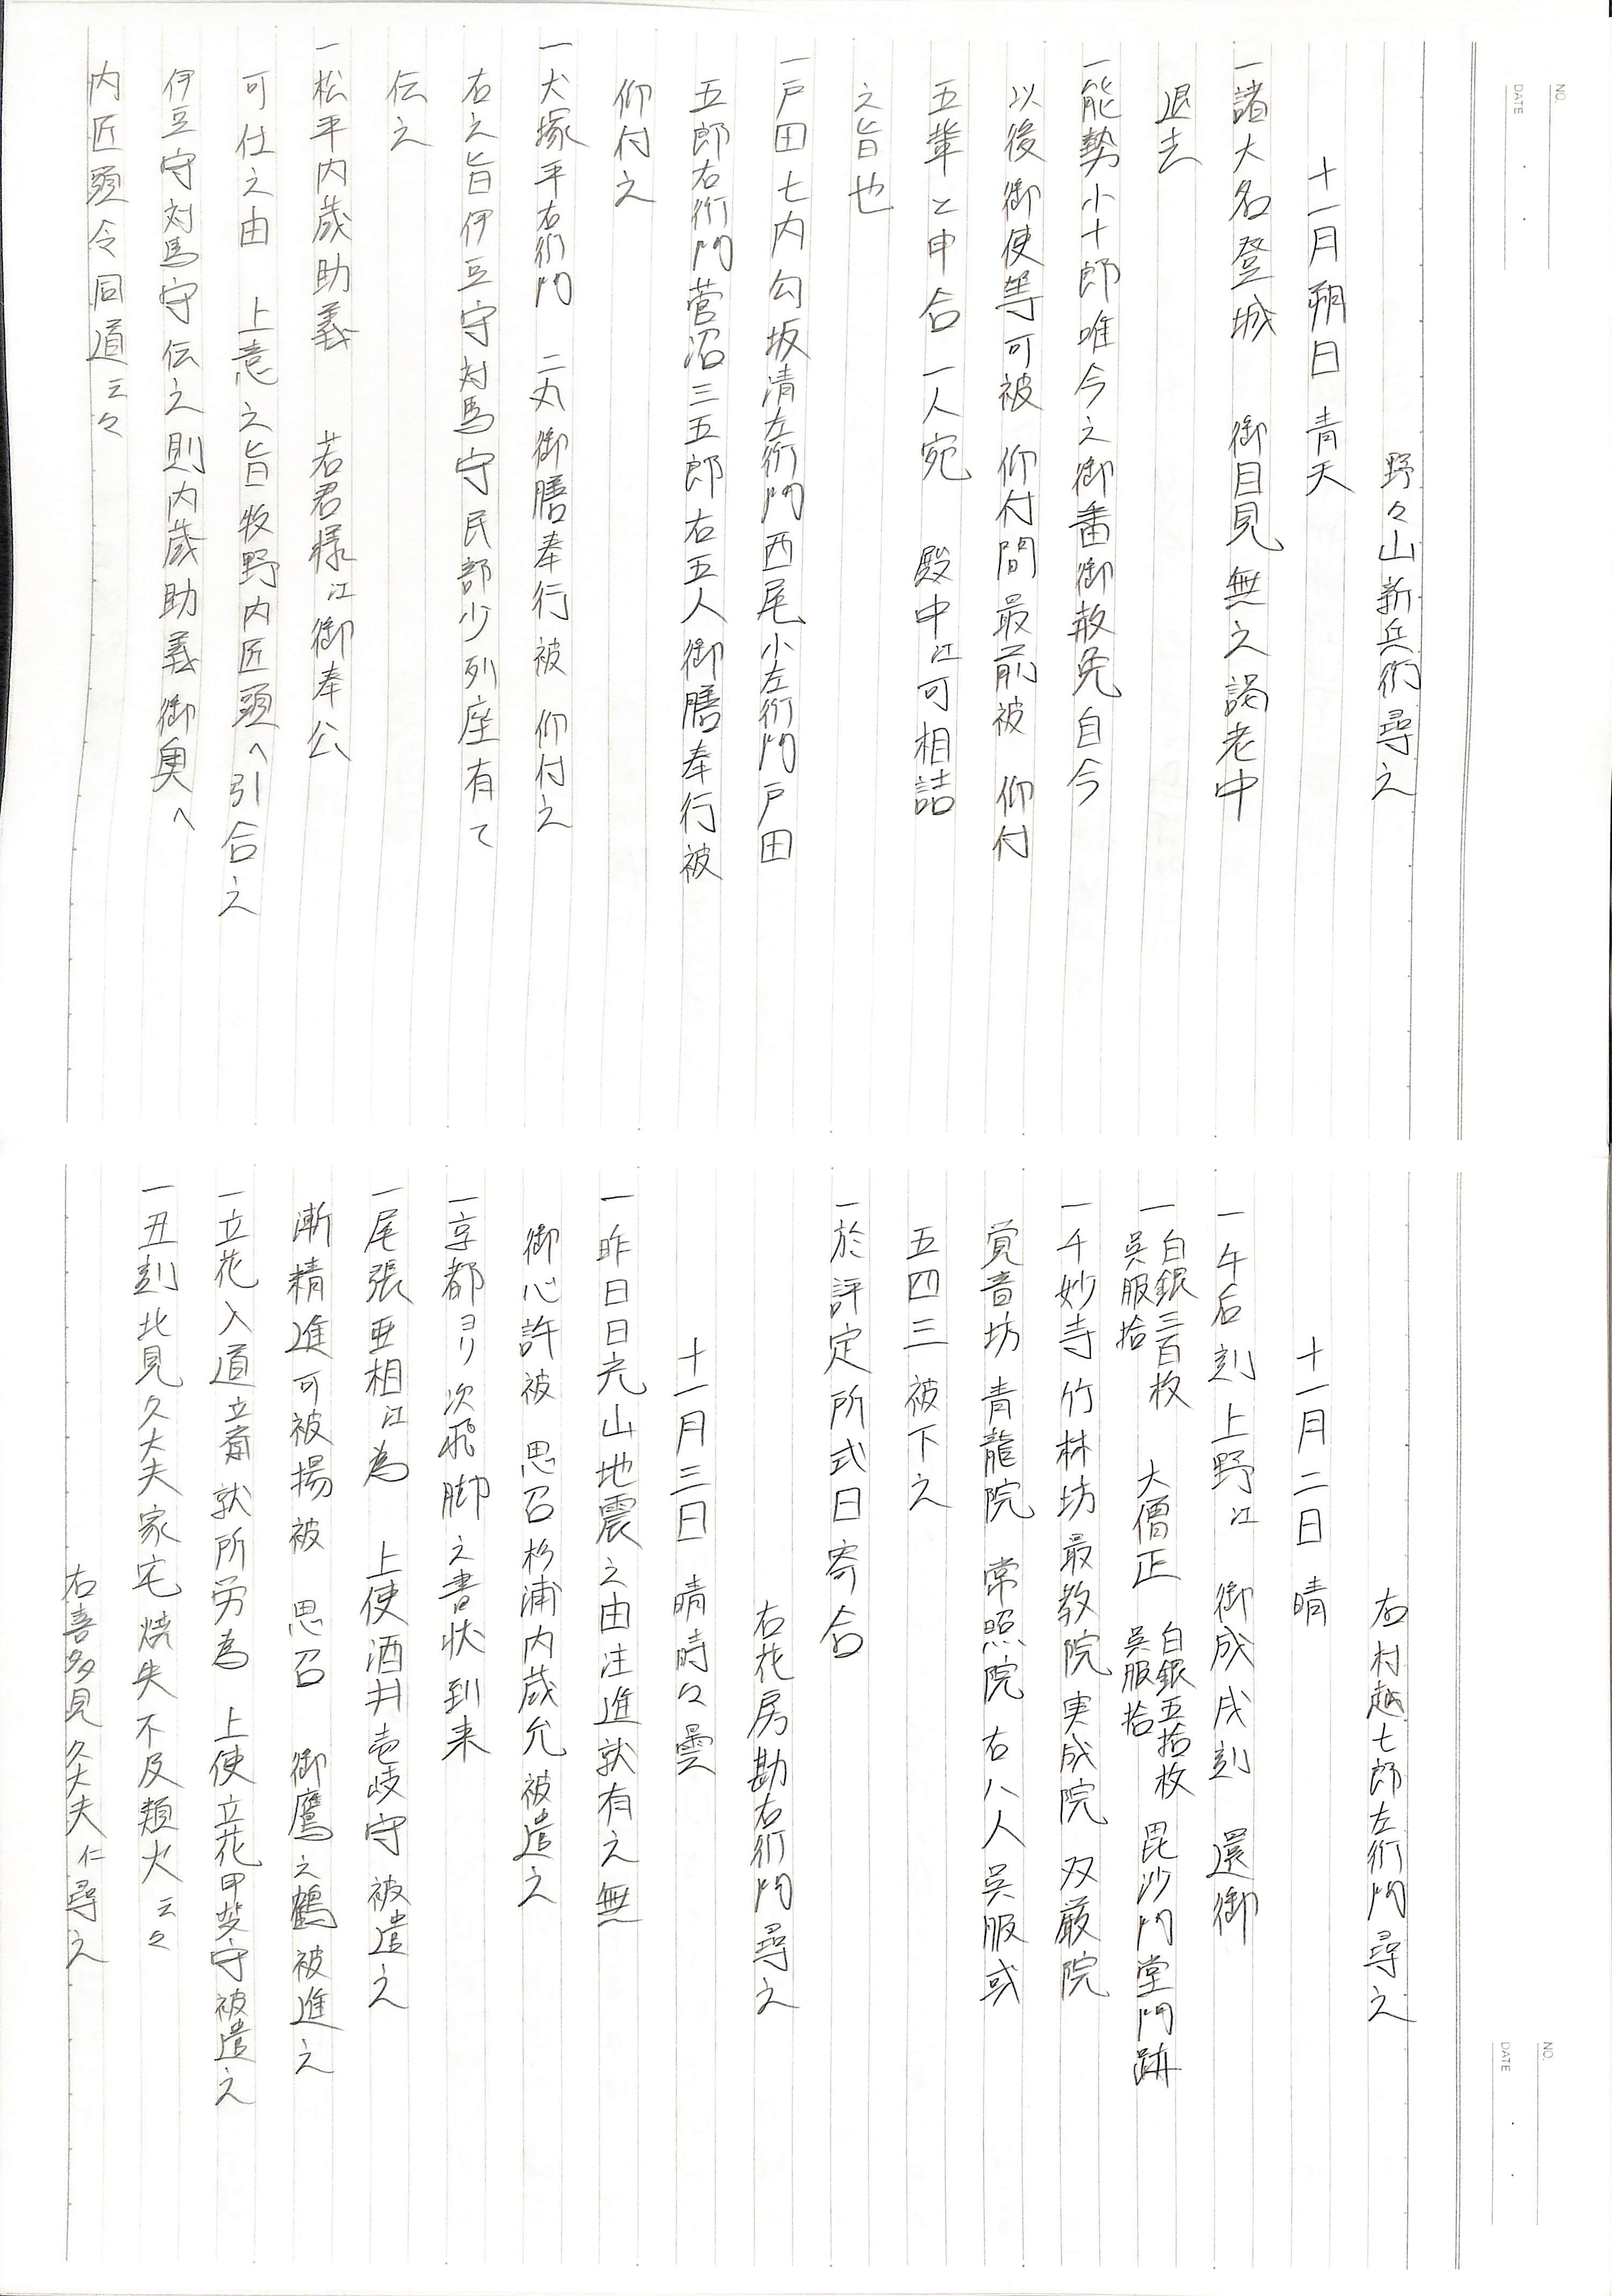 NO.
DATE
野々山新兵衛尋之
十一月朔日 青天
一諸大名登城 御目見無之謁老中
退去
一能勢小十郎唯今之御番御赦免自今
以後御使等可被 仰付間最前被 仰付
五輩と申合一人宛 殿中江可相詰
之旨也
一戸田七内勾坂清左衛門西尾小左衛門戸田
五郎右衛門菅沼三五郎右五人御膳奉行被
仰付之
一犬塚平右衛門 二丸御膳奉行被 仰付之
右之旨伊豆守対馬守民部少列座有て
伝之
一松平内蔵助義 若君様江御奉公
可仕之由 上意之旨牧野内匠頭へ引合之
伊豆守対馬守伝之則内蔵助義御奥へ
内匠頭令同道云々
NO.
DATE
右村越七郎左衛門尋之
十一月二日 晴
一午后刻上野江 御成戌刻 還御
一白銀三百枚 呉服拾 大僧正 白銀五拾枚 呉服拾 毘沙門堂門跡
一千妙寺竹林坊最教院実成院双厳院
覚音坊青龍院 常照院右八人呉服或
五四三被下之
一於評定所式日寄合
右花房勘右衛門尋之
十一月三日 晴時々曇
一昨日日光山地震之由注進就有之無
御心許被 思召杉浦内蔵允被遣之
一京都ヨリ次飛脚之書状到来
一尾張亜相江為 上使酒井壱岐守被遣之
漸精進可被揚被 思召 御鷹之鶴被進之
一立花入道立斎就所労為 上使立花甲斐守被遣之
一丑刻北見久大夫家宅焼失不及類火云々
右喜多見久大夫仁尋之